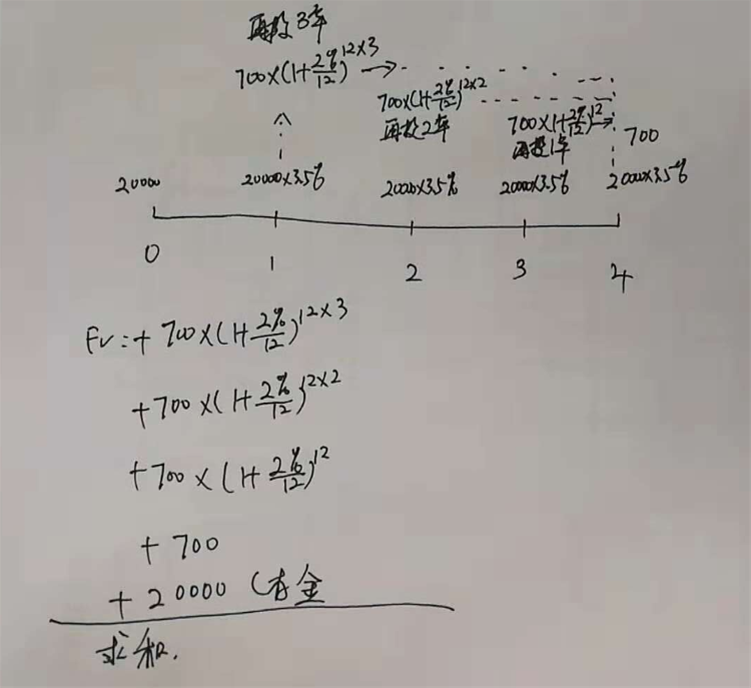 再投3年
700×(1+2%/12)^12×3
700×(1+2%/12)^12×2
再投2年
700×(1+2%/12)^12
再投1年
700
20000
20000×3.5%
2000×3.5%
20000×3.5%
2000×3.5%
0
1
2
3
4
FV:+ 700×(1+2%/12)^12×3
+700×(1+2%/12)^12×2
+700×(1+2%/12)^12
+700
+20000 (本金
求和.